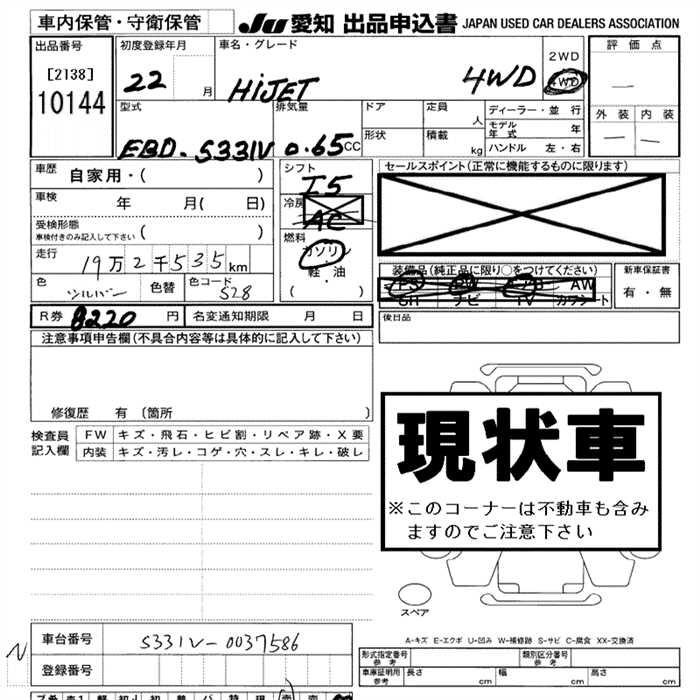 車内保管・守衛保管 JU 愛知 出品申込書 JAPAN USED CAR DEALERS ASSOCIATION
出品番号 初度登録年月 車名・グレード 2WD 評価点
[2138] 22 月 HiJET 4WD 4WD —
10144 型式 排気量 ドア 定員 人 ディーラー・並行 外装 内装
EBD-S331V 0.65CC 形状 積載 kg モデル年式 年 — —
ハンドル 左・右
車歴 自家用・( ) シフト I5 セールスポイント(正常に機能するものに限ります)
車検 年 月( 日) 冷房 AC
受検形態
車検付きのみ記入して下さい ( ) 燃料 ガソリン
走行 19万2千535km 軽・油
色 シルバー 色替 色コード S28 ( ) 装備品(純正品に限り○をつけてください) 新車保証書
PS PW AW 有・無
ナビ TV カワシート
R券 8220円 名変通知期限 月 日 後日品
注意事項申告欄(不具合内容等は具体的に記入して下さい)
修復歴 有(箇所 )
検査員記入欄 FW キズ・飛石・ヒビ割・リペア跡・X要
内装 キズ・汚レ・コゲ・穴・スレ・キレ・破レ
現状車
※このコーナーは不動車も含み
ますのでご注意下さい
スペア
A-キズ E-エクボ U-凹み W-補修跡 S-サビ C-腐食 XX-交換済
N 車台番号 S331V-0037586
登録番号
形式指定番号 参考 類別区分番号 参考
車庫証明用 参考 長さ cm 幅 cm 高さ cm